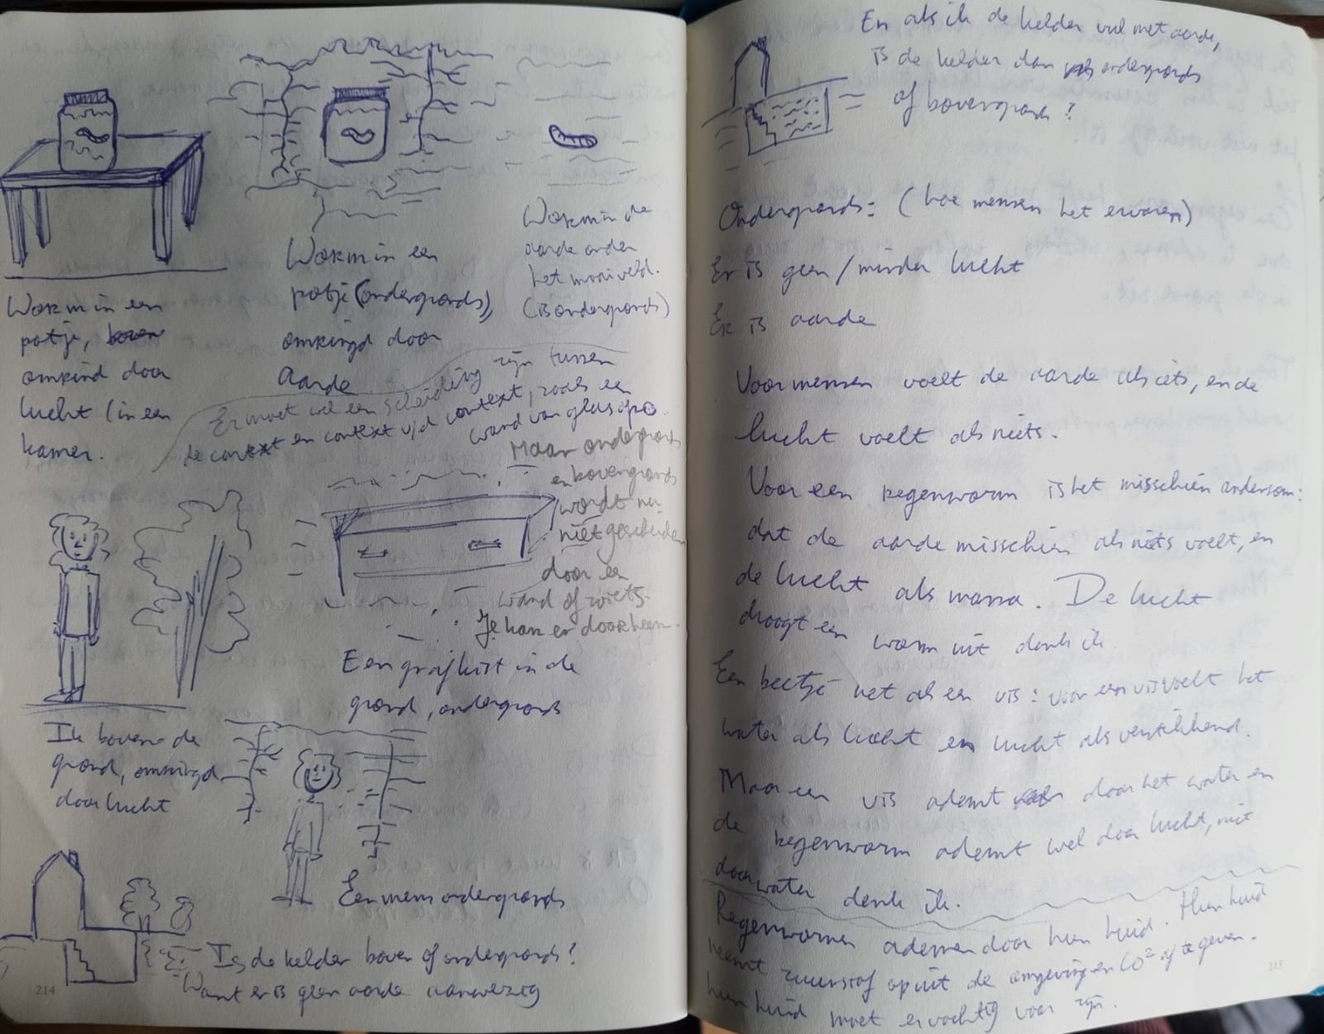 Worm in een
potje, boven
omkind door
lucht (in een
kamer.
Worm in een
potje (ondergronds),
omringd door
aarde
Worm in de
aarde onder
het maaiveld.
(is ondergronds)
Er moet wel een scheiding zijn tussen
de context en context v/d context, zoals een
wand van glas
Maar ondergronds
en bovengronds
wordt nu
niet gescheiden
door een
wand of zoiets.
Je kan er doorheen.
Ik boven de
grond, omringd
door lucht
Een grafkist in de
grond, ondergronds
Een mens ondergronds
Is de kelder boven of ondergronds?
Want er is geen aarde aanwezig
214
En als ik de kelder vul met aarde,
is de kelder dan ondergronds
of bovengronds?
Ondergronds: (hoe mensen het ervaren)
Er is geen/minder lucht
Er is aarde
Voor mensen voelt de aarde als iets, en de
lucht voelt als niets.
Voor een regenworm is het misschien andersom:
dat de aarde misschien als niets voelt, en
de lucht als massa. De lucht
droogt een worm uit denk ik
Een beetje net als een vis: voor een vis voelt het
water als lucht en lucht als verstikkend.
Maar een vis ademt door het water en
de regenworm ademt wel door lucht, niet
door water denk ik.
Regenwormen ademen door hun huid. Hun huid
neemt zuurstof op uit de omgeving en CO² af te geven.
hun huid moet er vochtig voor zijn.
215